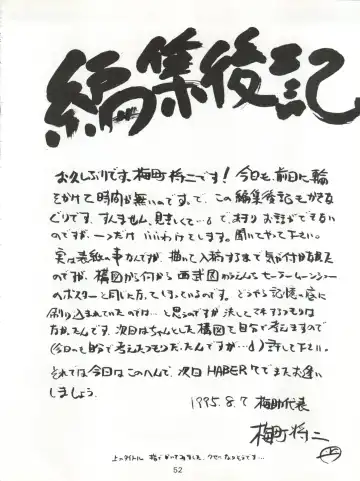 編集後記
お久しぶりです。梅町将二です！今回も、前回に輪
をかけて時間が無いのです。で、この編集後記もかきな
ぐりです。すんません、見苦しくて…。で、あまりお話ができない
のですが、一つだけいいわけをします。聞いてやって下さい。
実は表紙の事なんですが、描いて入稿するまで気が付かなかった
のですが、構図から何から西武園のらんらんセーラームーンショー
のポスターと同じ方してしまっているのです。どうやら記憶の底に
刷り込まれていたのでは…と思うのですが決してマネするつもりは
なかったんです。次回はちゃんとした構図で自分で考えますので
(今回も自分で考えたつもりだったんですが…)許して下さい。
それでは今回はこのへんで、次回HABERでまたお逢い
しましょう。
1995.8.7 梅町代表
梅町将二
52